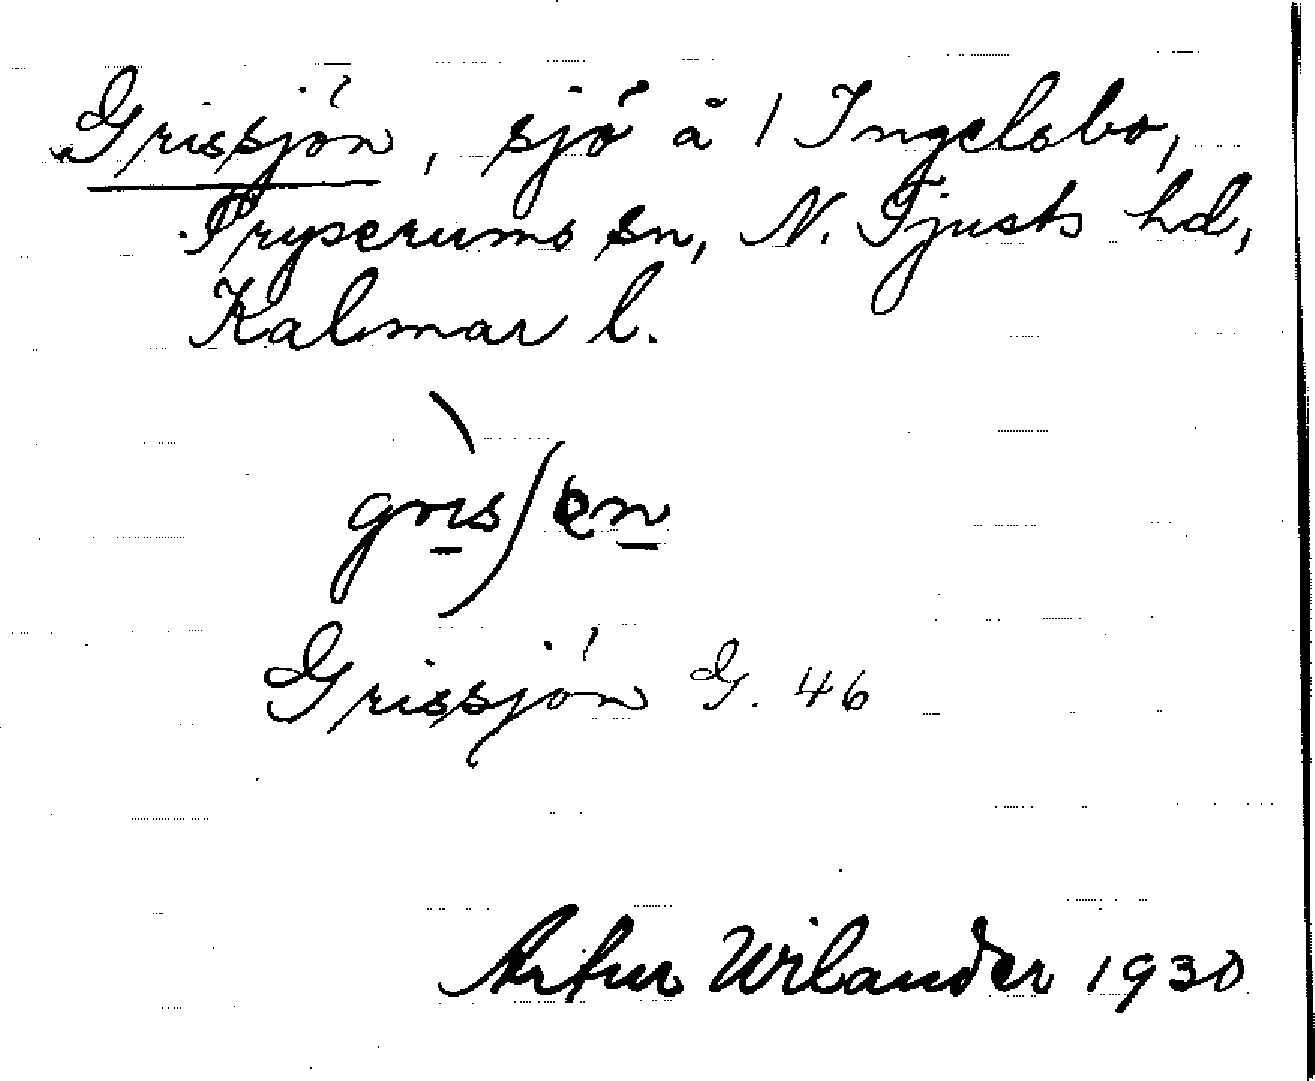 Grissjön, sjö å 1 Ingelsbo,
Tryserums sn, N. Tjusts hd,
Kalmar l.
gris/en
Grissjön G. 46
Artur Wilander 1930